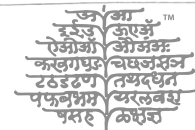 अ आ TM
इ ई उ ऊ ए ऐ
ऐ ओ औ ओ अं अः
क ख ग घ ङ च छ ज झ ञ
ट ठ ड ढ ण त थ द ध न
प फ ब भ म य र ल व श
ष स ह ळ क्ष ज्ञ